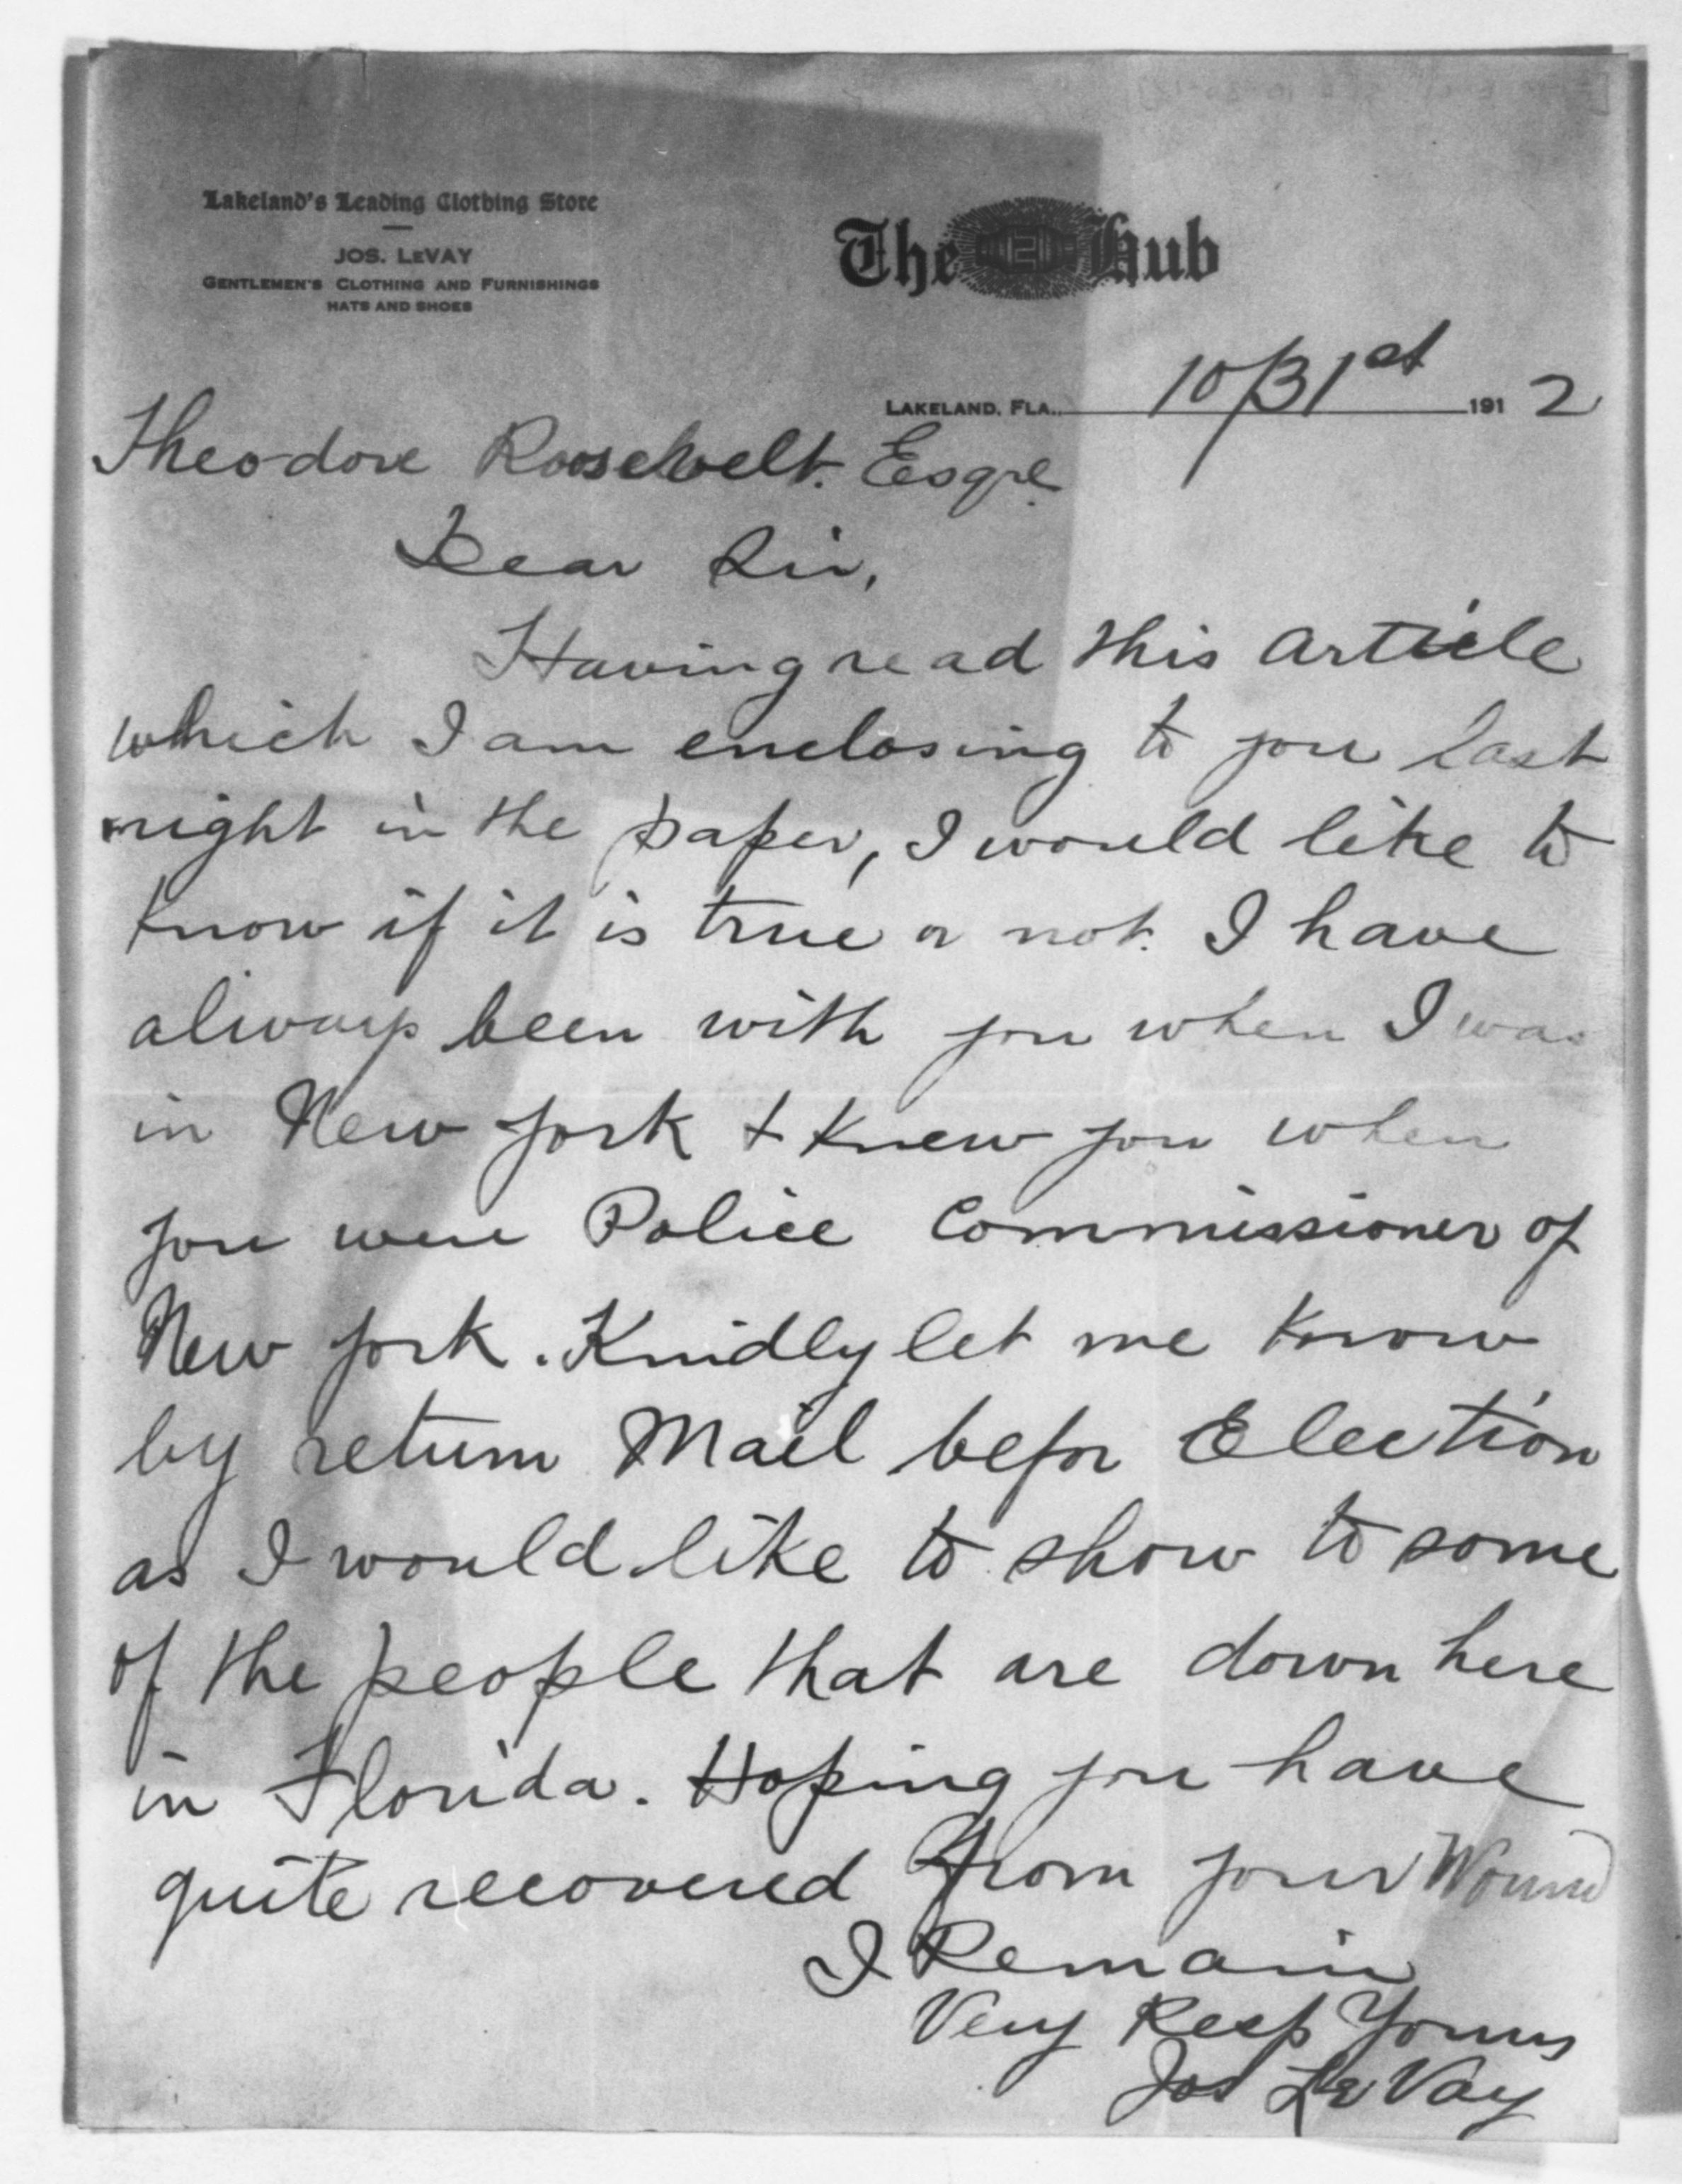 Lakeland's Leading Clothing Store
JOS. LEVAY
GENTLEMEN'S CLOTHING AND FURNISHINGS
HATS AND SHOES
The Hub
LAKELAND, FLA., 10/31st 1912
Theodore Roosevelt. Esqre
Dear Sir,
Having read this article
which I am enclosing to you last
night in the paper, I would like to
know if it is true or not. I have
always been with you when I was
in New York & knew you when
you were Police Commissioner of
New York. Kindly let me know
by return Mail befor Election
as I would like to show to some
of the people that are down here
in Florida. Hoping you have
quite recovered from your Wound
I Remain
Very Resp Yours
Jos LeVay